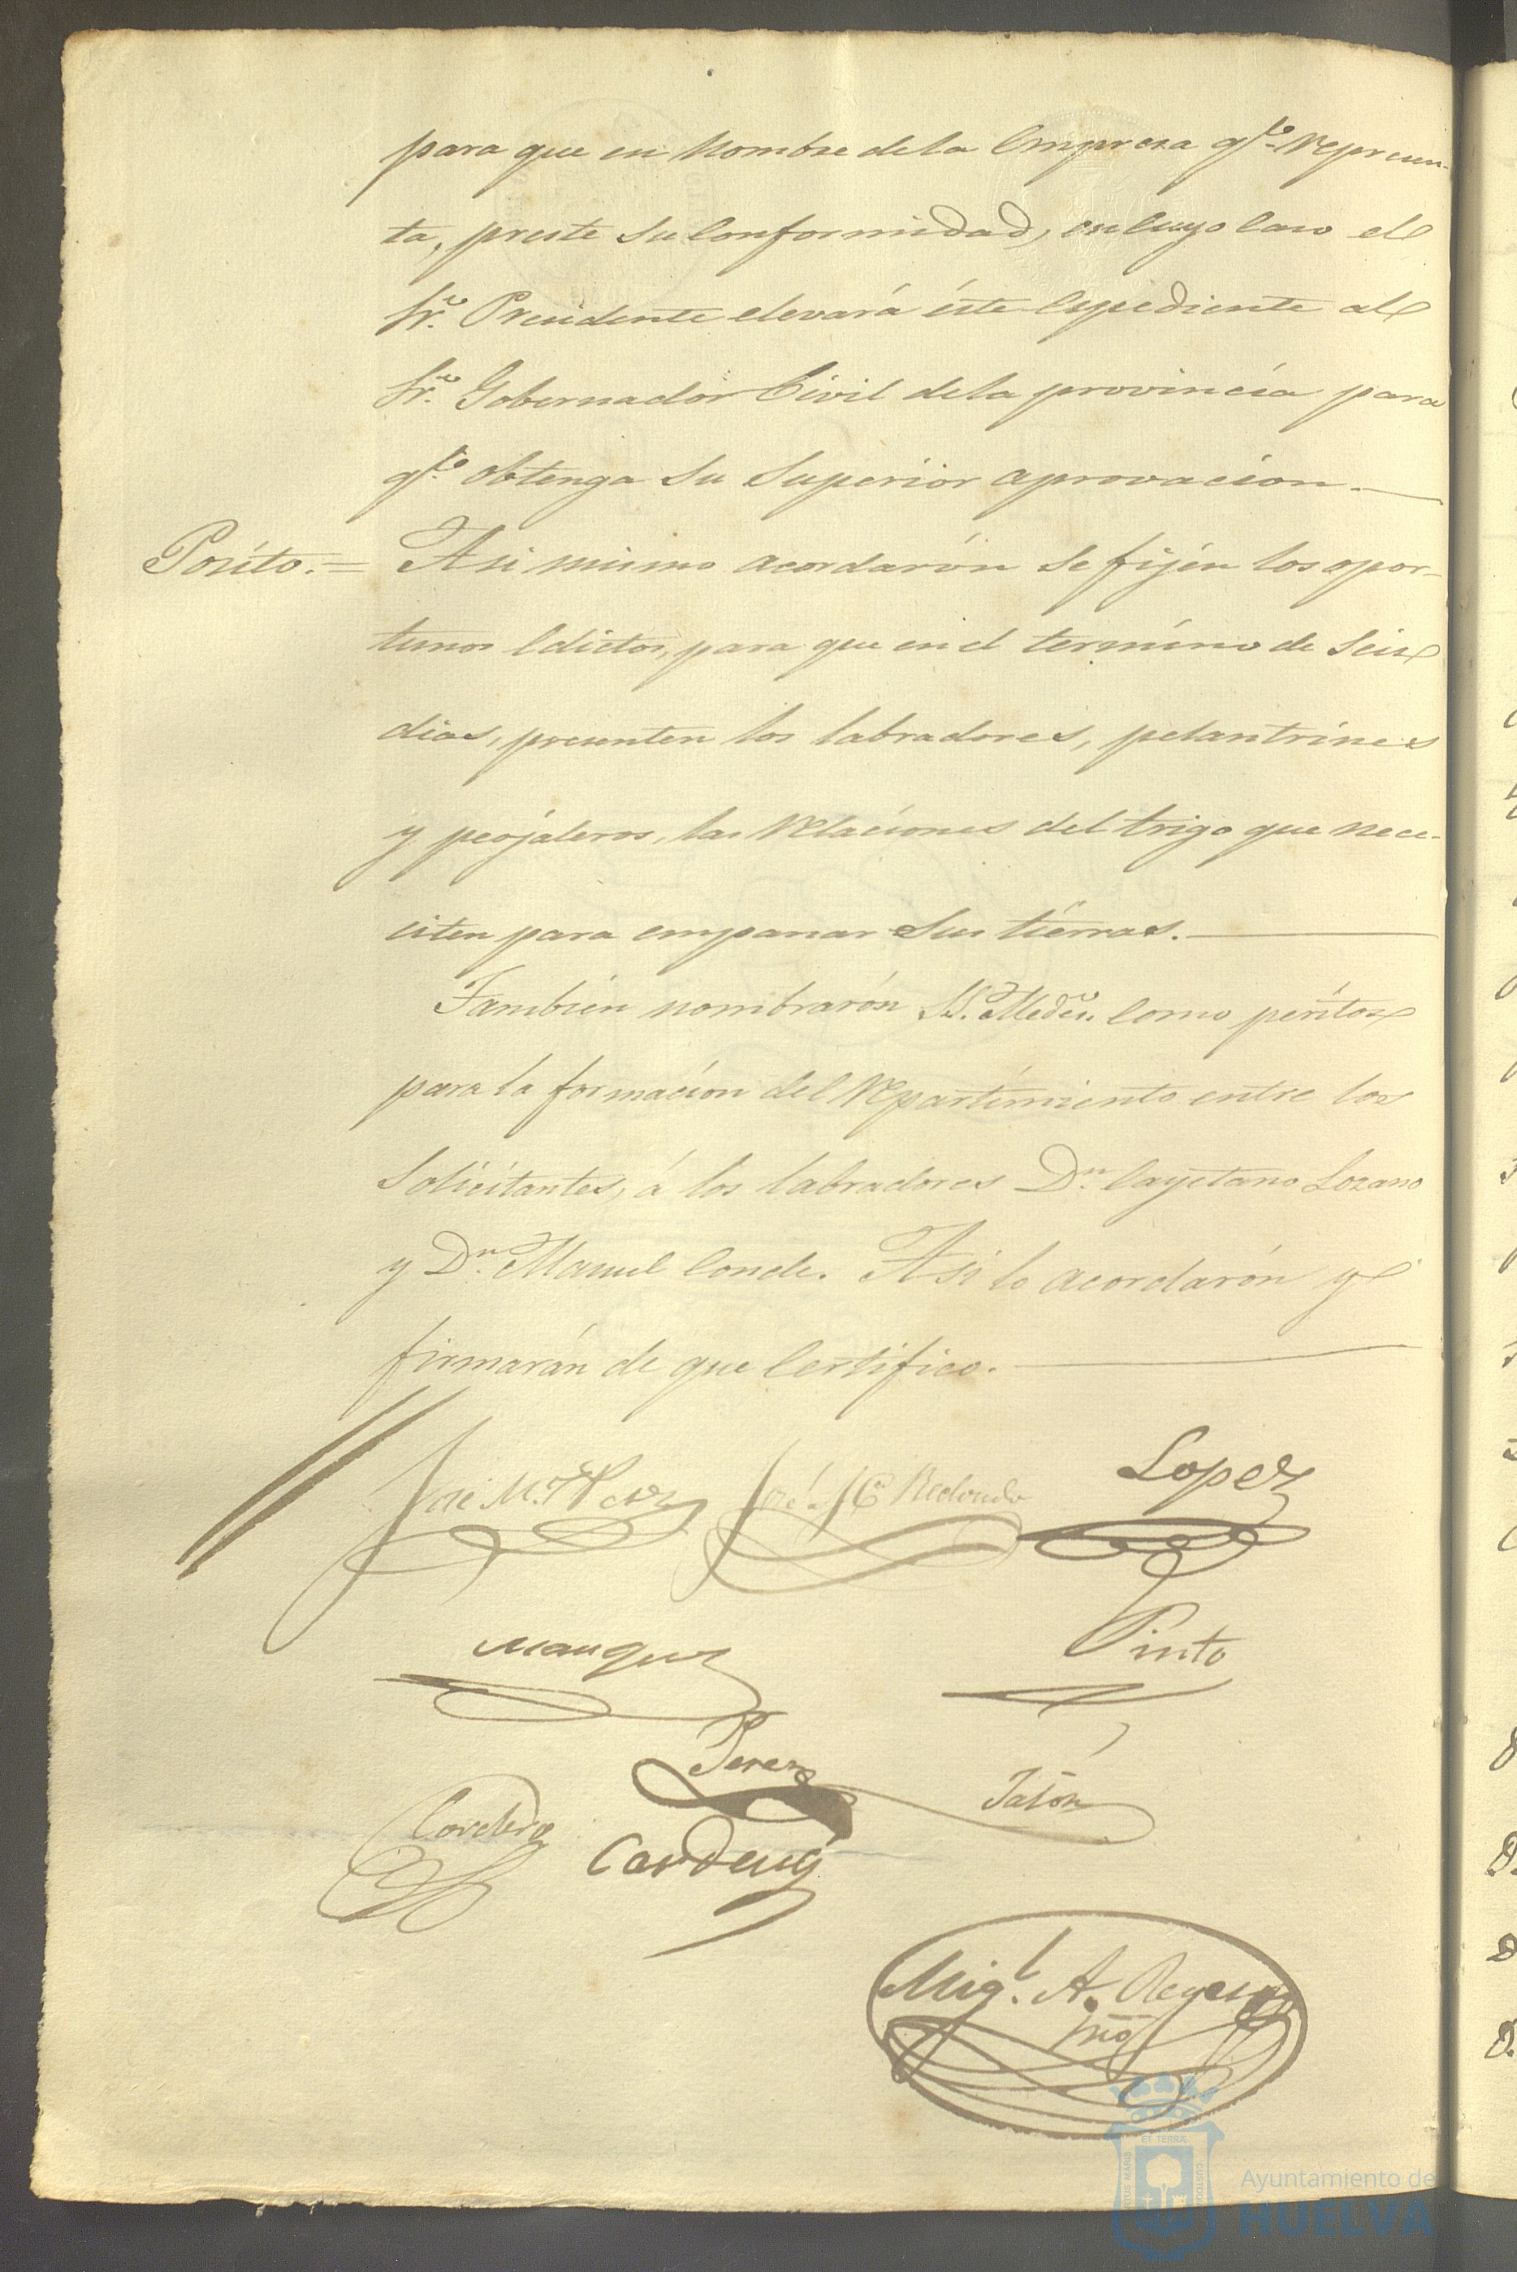 para que en nombre de la Empresa qe. represen-
ta, preste su Conformidad, en cuyo Caso el
Sr. Presidente elevará éste Espediente al
Sr. Gobernador Civil de la provincia para
qe. obtenga su Superior aprovacion.
Pósito.= Asi mismo acordarón se fijén los opor-
tunos Edictos, para que en el termíno de Seis
dias, presenten los labradores, pelantrínes
y peojáleros, las relaciones del trigo que nece-
citen para empanar sus tiérras.
Tambien nombrarón S.S. Medes. Como péritos
para la formacion del repartimiento entre los
Solicitantes, á los labradores Dn. Cayetano Lozano
y Dn. Manuel Conde. Asi lo acordarón y
firmarán de que Certifico.
José M. Perez José Ma Redondo Lopez
Marquez Pinto
Perez
Cordero Jalón
Migl. A. Reyes
Srio
Ayuntamiento de
HUELVA